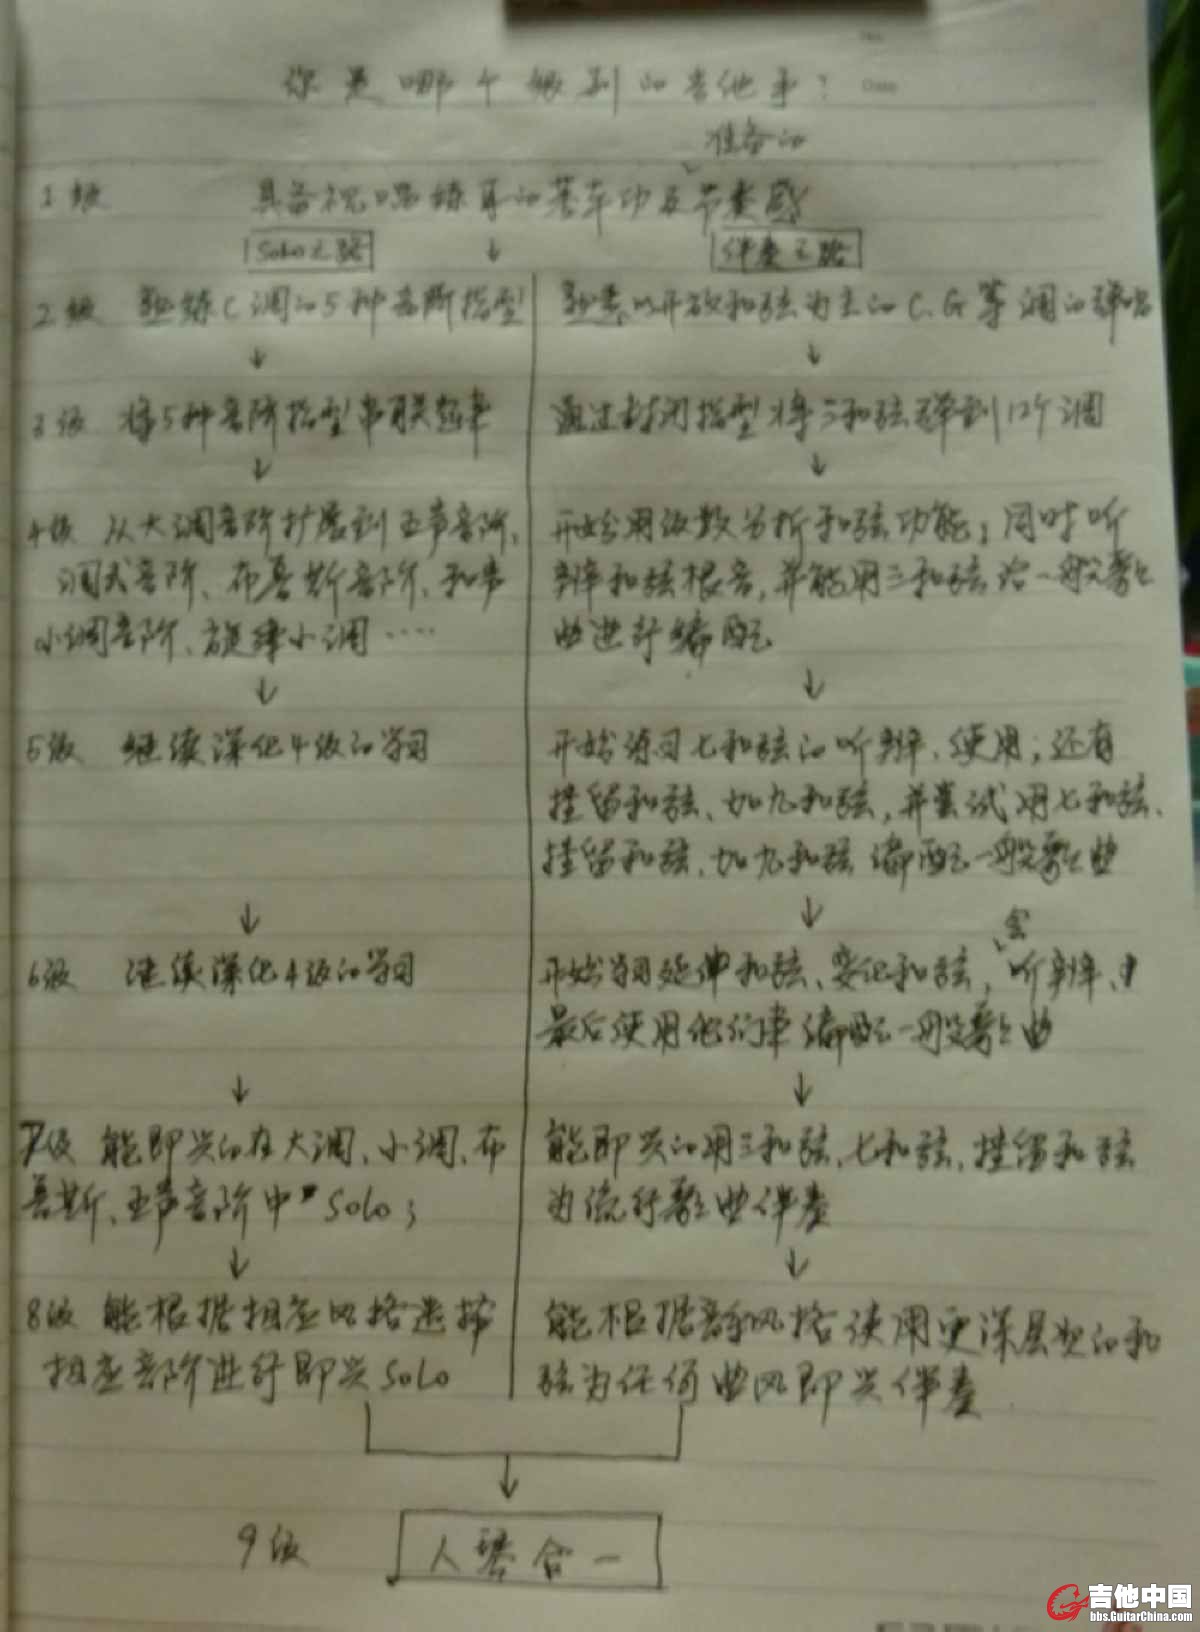 你是哪个级别的吉他手?
准备的
1级 具备视唱练耳的基本功及节奏感
Solo之路 伴奏之路
2级 熟练C调的5种音阶指型
熟悉以开放和弦为主的C.G等调的弹唱
3级 将5种音阶指型串联起来
通过封闭指型将三和弦弹到12个调
4级 从大调音阶扩展到五声音阶,
调式音阶、布鲁斯音阶、和声
小调音阶、旋律小调……
开始用级数分析和弦功能;同时听
辨和弦根音,并能用三和弦给一般歌
曲进行编配
5级 继续深化4级的学习
开始练习七和弦的听辨、使用;还有
挂留和弦、加九和弦,并尝试用七和弦、
挂留和弦、加九和弦编配一般歌曲
6级 继续深化4级的学习
会
开始学习延伸和弦、变化和弦,听辨、
最后使用他们来编配一般歌曲
7级 能即兴的在大调、小调、布
鲁斯、五声音阶中Solo;
能即兴的用三和弦、七和弦、挂留和弦
为流行歌曲伴奏
8级 能根据相应风格选择
相应音阶进行即兴Solo
能根据音乐风格使用更深层次的和
弦为任何曲风即兴伴奏
9级 人琴合一
吉他中国
bbs.GuitarChina.com